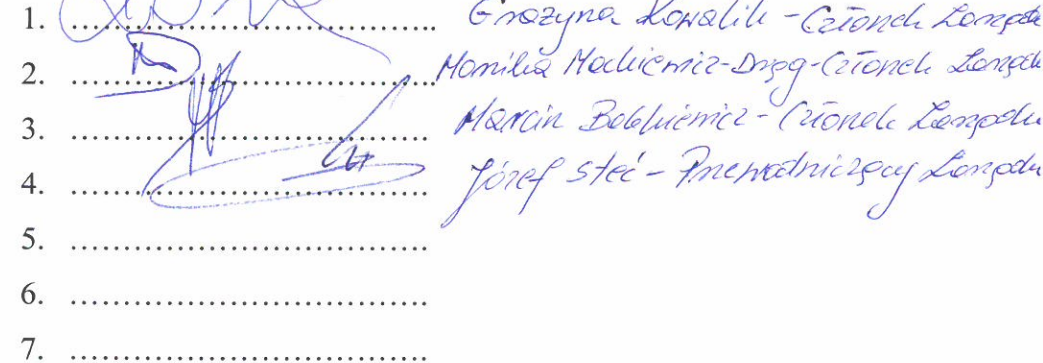 1. .......................................... Grażyna Kowalik - Członek Zarządu
2. .......................................... Monika Mackiewicz-Drąg - Członek Zarządu
3. .......................................... Marcin - Członek Zarządu
4. .......................................... Józef Steć - Przewodniczący Zarządu
5. ..........................................
6. ..........................................
7. ..........................................